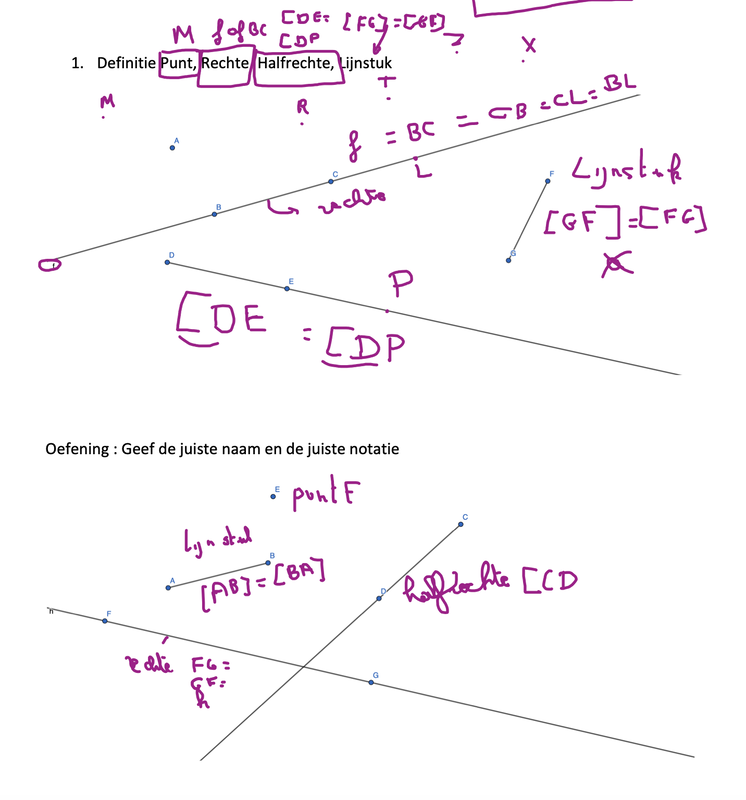 M f of BC [DE= [FG]=[GF]
[DP
?
X
1. Definitie Punt, Rechte, Halfrechte, Lijnstuk
M
R
T
A
f = BC = CB = CL = BL
C
L
B
rechte
F
Lijnstuk
[GF]=[FG]
G
D
E
P
[DE
= [DP
Oefening : Geef de juiste naam en de juiste notatie
E
punt E
C
Lijnstuk
A
B
[AB]=[BA]
D
halfrechte [CD
h
F
rechte FG=
GF=
h
G